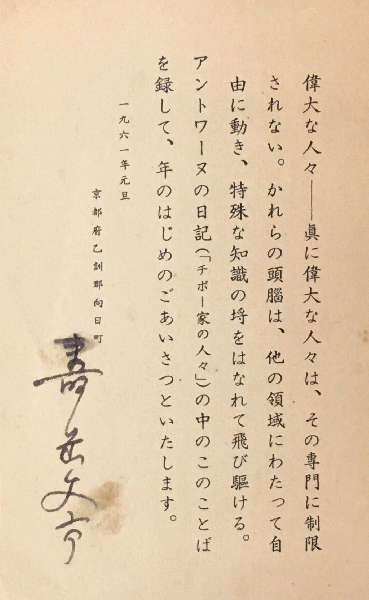 偉大な人々――眞に偉大な人々は、その専門に制限
されない。かれらの頭腦は、他の領域にわたって自
由に動き、特殊な知識の埒をはなれて飛び駆ける。
アントワーヌの日記(「チボー家の人々」)の中のこのことば
を録して、年のはじめのごあいさつといたします。
一九六一年元旦
京都府乙訓郡向日町
壽岳文章